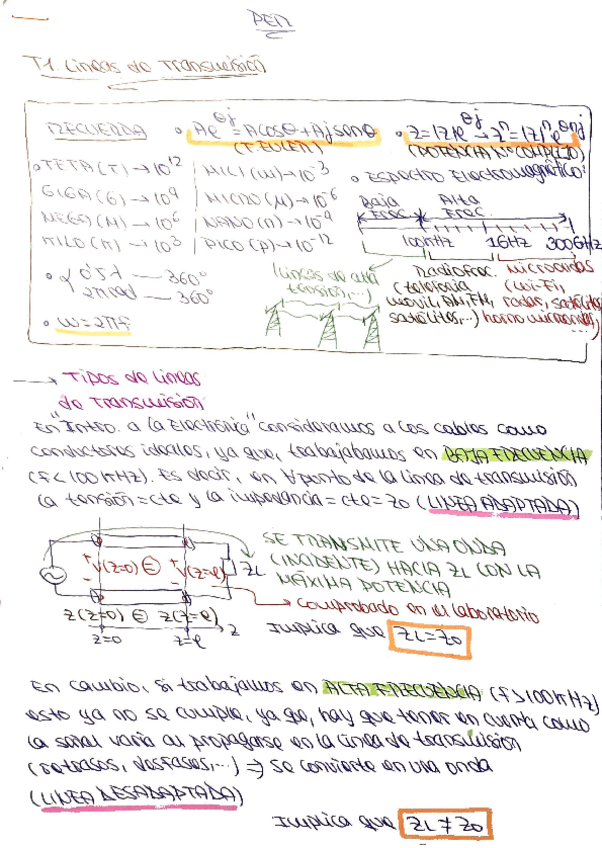 PEM
T1. Lineas de Transmisión
RECUERDA
• Ae^θj = Acosθ + Ajsenθ
(T. EULER)
• z=|z|e^θj → z^n=|z|^n e^θnj
(POTENCIA Nº COMPLEJO)
• TETA (T) → 10^12
GIGA (G) → 10^9
MEGA (M) → 10^6
KILO (K) → 10^3
MILI (m) → 10^-3
MICRO (μ) → 10^-6
NANO (n) → 10^-9
PICO (p) → 10^-12
• Espectro Electromagnético:
Baja Frec.
Alta Frec.
100kHz 1GHz 300GHz
(lineas de alta
tensión,...)
Radiofrec.
(telefonia
movil, AM, FM,
satélites,...)
Microondas
(Wi-Fi,
radar, satélites
horno microondas,
• 0'5λ — 360°
2πrad — 360°
• ω = 2πf
→ Tipos de lineas
de transmision
En "Intro. a la Electronica" consideramos a los cables como
conductores ideales, ya que, trabajabamos en BAJA FRECUENCIA
(f<100kHz). Es decir, en ∀ punto de la linea de transmisión
la tensión = cte y la impedancia = cte = Z0 (LINEA ADAPTADA)
+ V(z=0) = + V(z=l)
- -
ZL
Z(z=0) = Z(z=l)
z=0 z=l z
SE TRANSMITE UNA ONDA
(INCIDENTE) HACIA ZL CON LA
MÁXIMA POTENCIA
→ Comprobado en el laboratorio
Implica que ZL=Z0
En cambio, si trabajamos en ALTA FRECUENCIA (f>100kHz)
esto ya no se cumple, ya que, hay que tener en cuenta como
la señal varia al propagarse en la linea de transmisión
(retrasos, desfases,...) ⇒ Se convierte en una onda
(LINEA DESADAPTADA)
Implica que ZL≠Z0